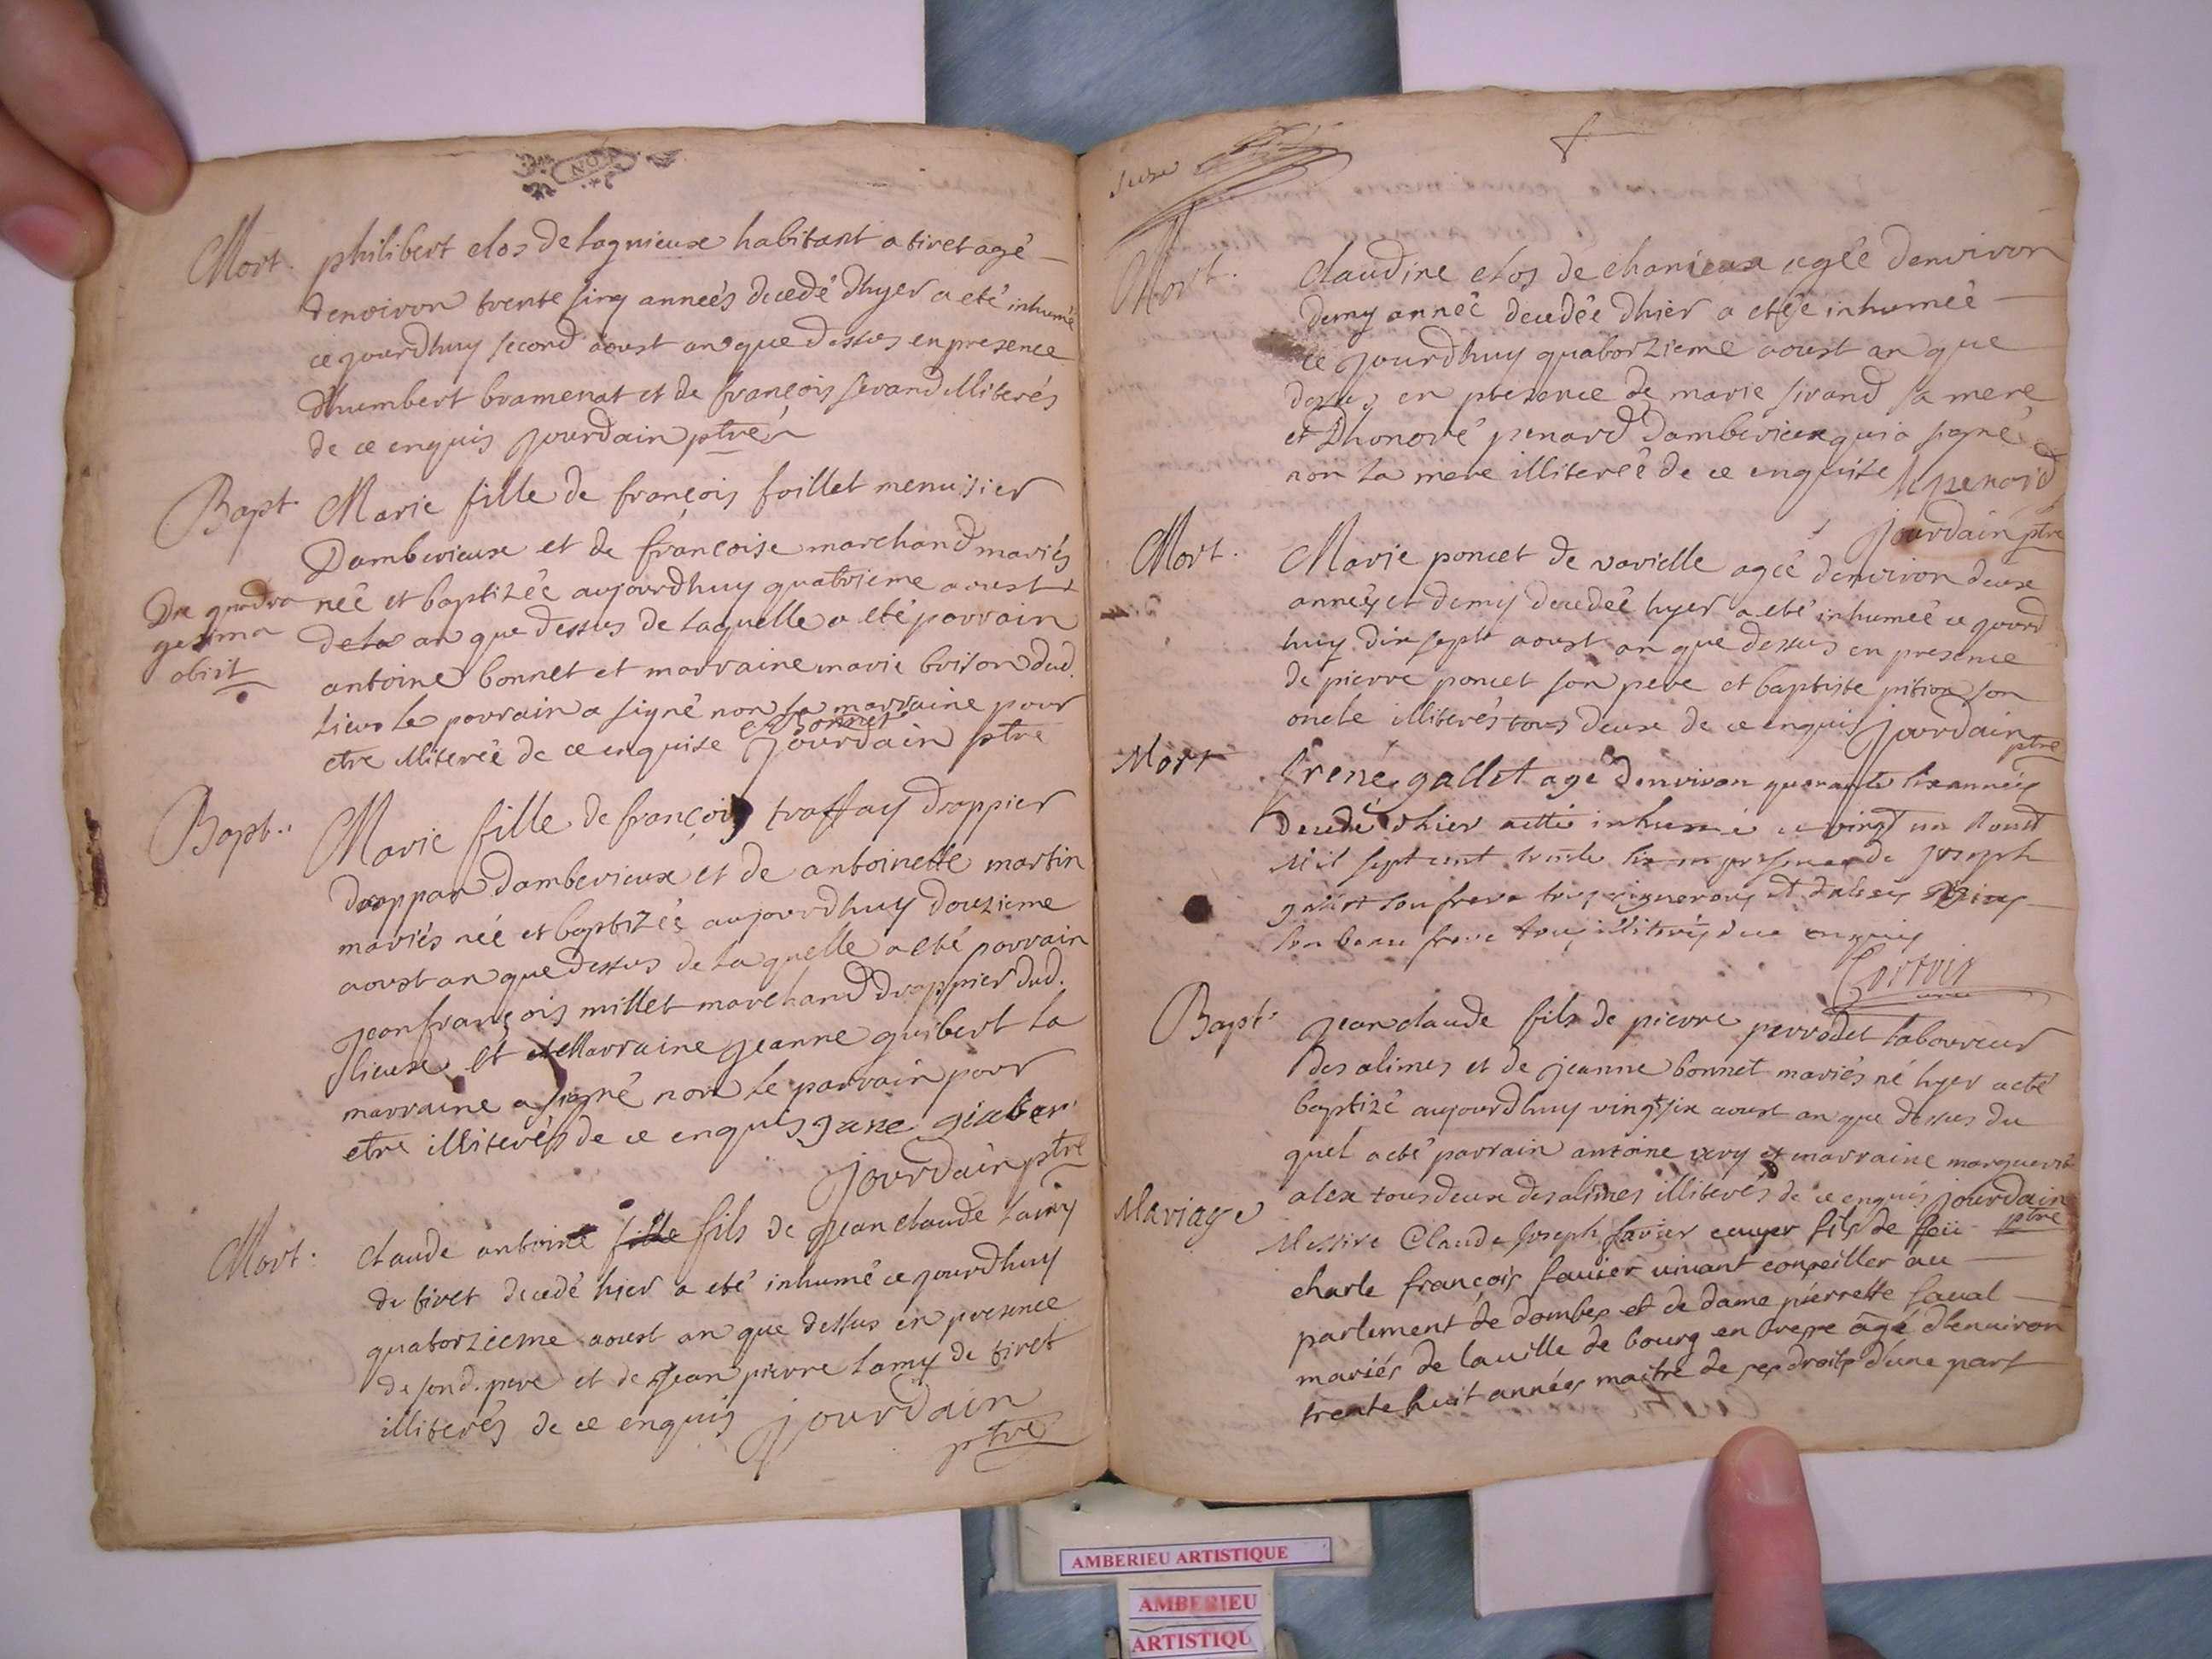 Mort. philibert clos de lagnieux habitant a tiret agé
denviron trente sinq anneés decedé dhyer a eté inhumé
ce jourdhuy second aoust an que dessus en presence
dhumbert bramenat et de françois sirand illiterés
de ce enquis Jourdain ptre
Bapt. Marie fille de françois foillet menuisier
Damberieux et de françoise marchand mariés
neé et baptizeé aujourdhuy quatrieme aoust
an que dessus de laquelle a eté parrain
antoine bonnet et marraine marie brison dud.
lieu le parrain a signé non la marraine pour
etre illitereé de ce enquise A Bonnet Jourdain ptre
Die quadra
gesima
obiit
Bapt. Marie fille de françois traffay drappier
drappan damberieux et de antoinette martin
mariés neé et baptizeé aujourdhuy douzieme
aoust an que dessus de laquelle a eté parrain
jean françois millet marchand drappier dud.
lieux et marraine jeanne guibert la
marraine a signé non le parrain pour
etre illiterés de ce enquis jane giaber
Jourdain ptre
Mort. Claude antoine fille fils de jean claude lamy
de tiret decedé hier a eté inhumé ce jourdhuy
quatorzieme aoust an que dessus en presence
de sond. pere et de jean pierre lamy de tiret
illiterés de ce enquis Jourdain
ptre
Mort. Claudine clos de chanieux ageé denviron
demy anneé decedeé dhier a etée inhumeé
ce jourdhuy quatorzieme aoust an que
dessus en presence de marie sirand sa mere
et dhonoré penard damberieux qui a signé
non la mere illitereé de ce enquise h penard
Jourdain ptre
Mort. Marie poncet de varielle ageé denviron deux
anneés et demy decedeé hyer a eté inhumeé ce jourd
huy dix sept aoust an que dessus en presence
de pierre poncet son pere et baptiste pition son
oncle illiterés tous deux de ce enquis Jourdain
ptre
Mort Irené gallet agé denviron quarante six anneés
decedé dhier a eté inhumé ce vingt un Aoust
Mil sept cent trente six en presence de Joseph
gallet son frere tous vignerons et
son beau frere tous illiterés de ce enquis
Bapt. jean claude fils de pierre perrodet laboureur
des alimes et de jeanne bonnet mariés né hyer a eté
baptizé aujourdhuy vingt six aoust an que dessus du
quel a eté parrain antoine very et marraine marguerite
alex tous deux des alimes illiterés de ce enquis Jourdain
ptre
Mariage Messire Claude Joseph favier ecuyer fils de feü
charle françois favier vivant conseiller au
parlement de dombes et de dame pierrette faval
mariés de la ville de bourg en bresse âgé d'environ
trente huit années maitre de ses droits d'une part
AMBERIEU ARTISTIQUE
AMBERIEU
ARTISTIQU